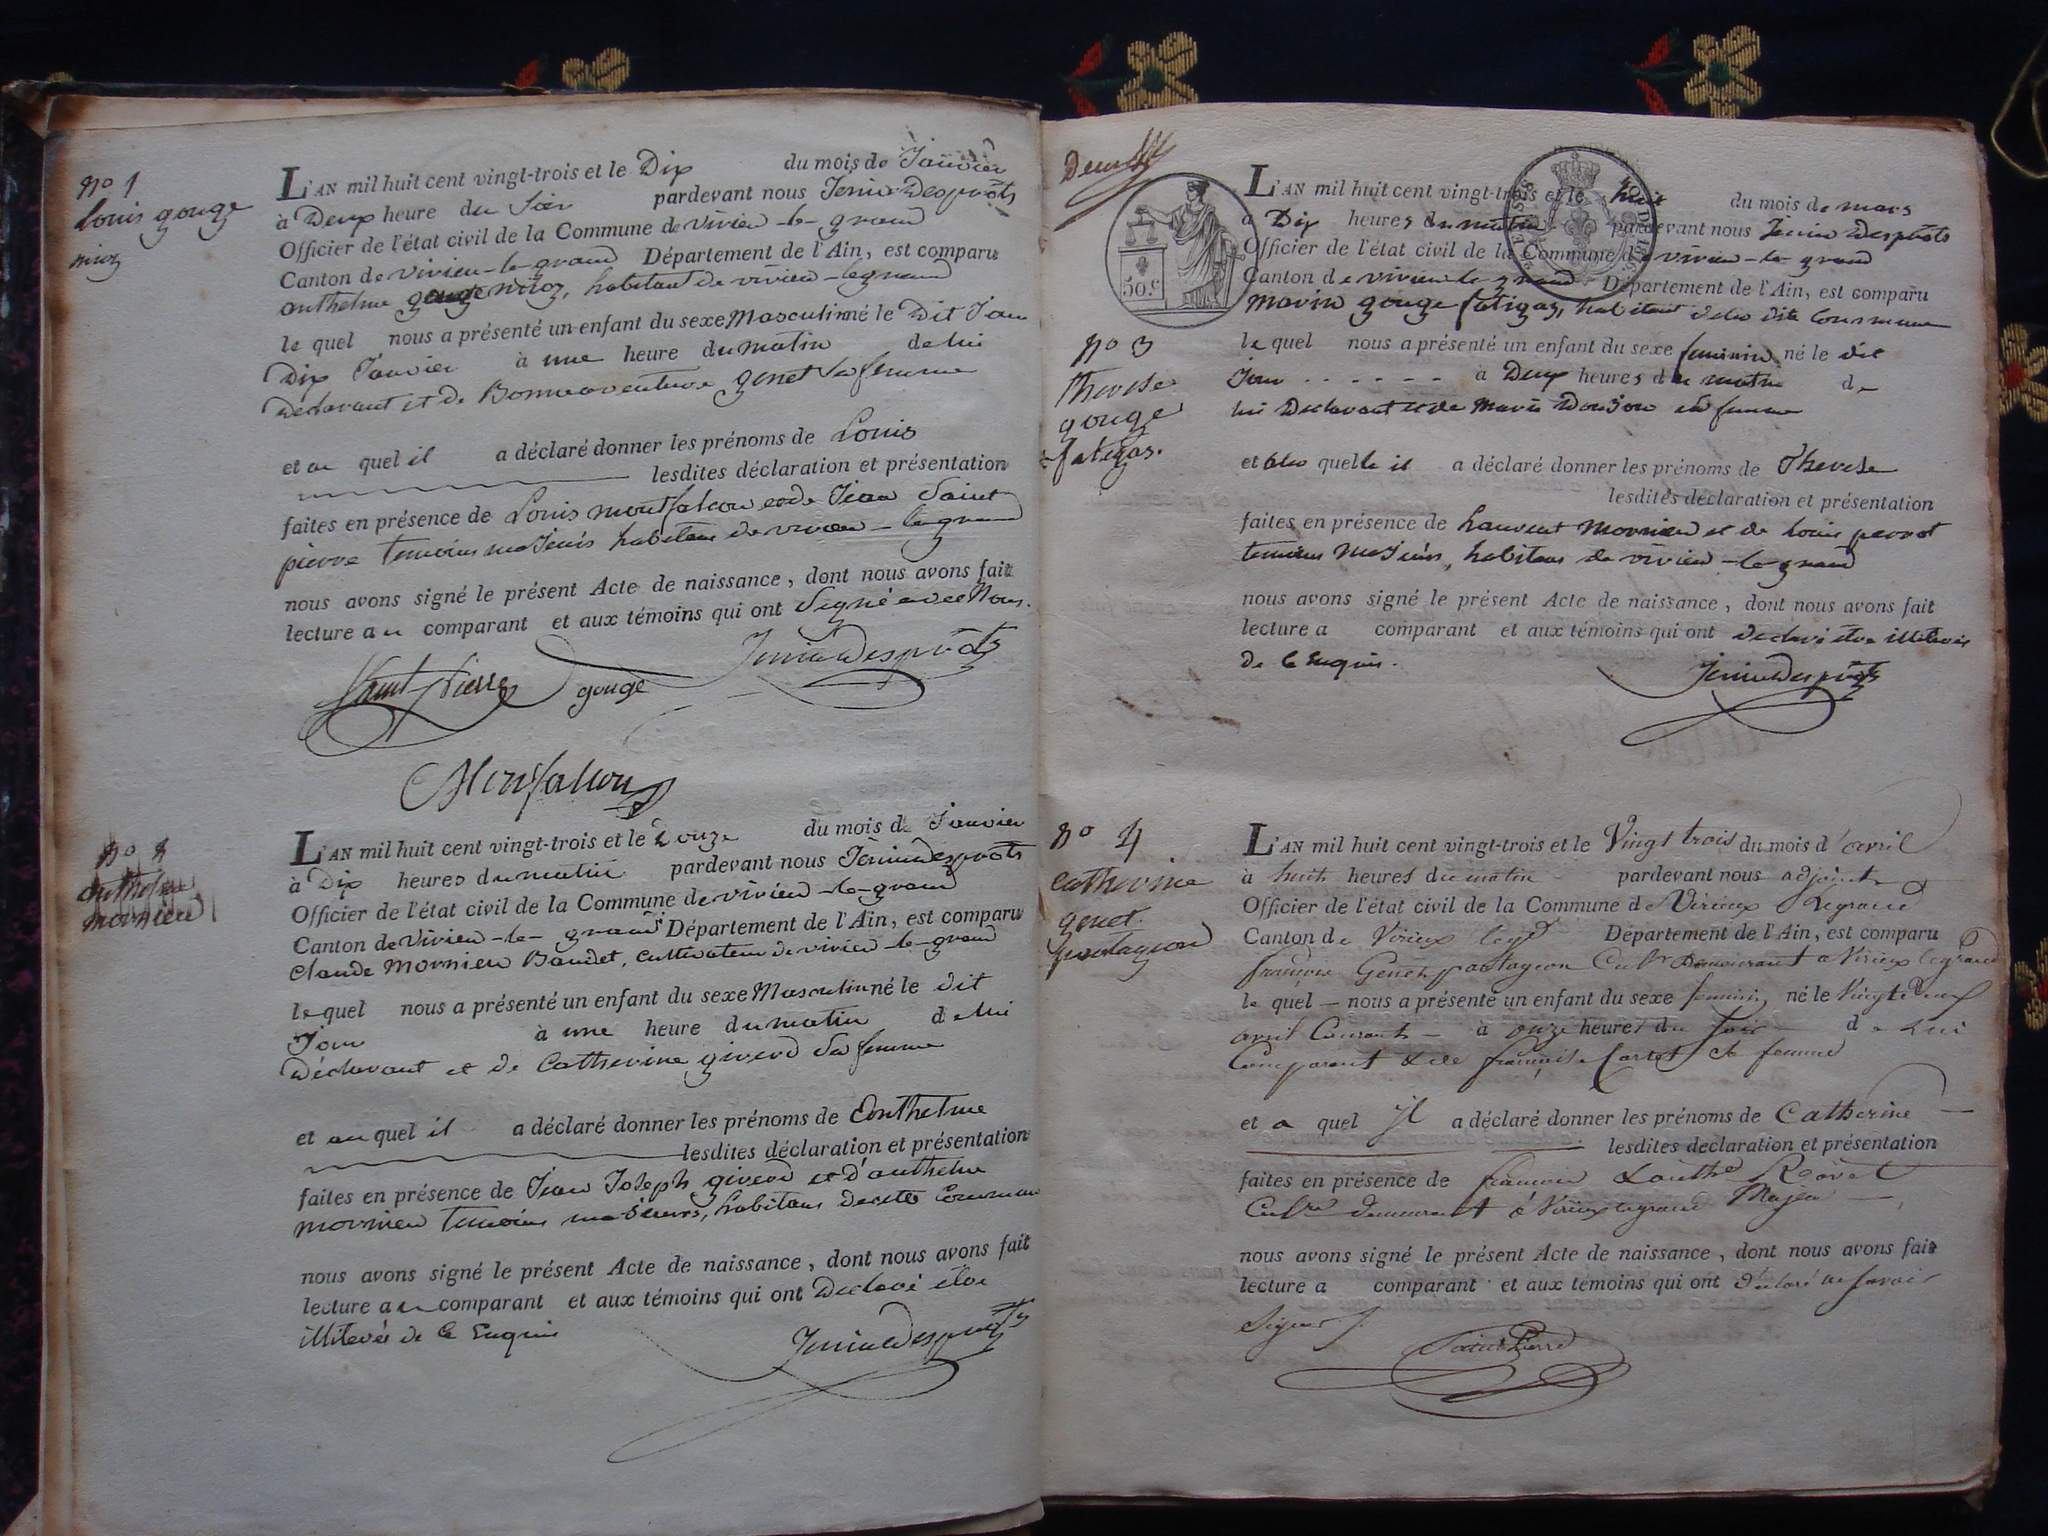 nº 1
Louis gouge
niroz
L'AN mil huit cent vingt-trois et le Dix du mois de Janvier
à Deux heure du Soir pardevant nous Jenin Desprôts
Officier de l'état civil de la Commune de virieu-le-grand
Canton de virieu-le-grand Département de l'Ain, est comparu
anthelme gouge niroz, habitant de virieu-le grand
le quel nous a présenté un enfant du sexe Masculin né le Dit Jour
Dix Janvier à une heure du matin de lui
Déclarant et de Bonneaventure genet sa femme
et au quel il a déclaré donner les prénoms de Louis
lesdites déclaration et présentation
faites en présence de Louis montfalcon et de Jean Saint
pierre temoins majeurs habitans de virieu-le grand
nous avons signé le présent Acte de naissance, dont nous avons fait
lecture au comparant et aux témoins qui ont Signé avec Nous.
Saint Pierre gouge Jenin Desprôts
Monfalcon
nº 2
anthelme
mornieu
L'AN mil huit cent vingt-trois et le Douze du mois de Janvier
à Dix heures du matin pardevant nous Jenin Desprôts
Officier de l'état civil de la Commune de virieu-le-grand
Canton de Virieu-le-grand Département de l'Ain, est comparu
Claude Mornieu Baudet, cultivateur de virieu-le-grand
le quel nous a présenté un enfant du sexe Masculin né le dit
Jour à une heure du matin de lui
Déclarant et de Catherine girerd sa femme
et au quel il a déclaré donner les prénoms de Enthelme
lesdites déclaration et présentation
faites en présence de Jean Joseph girerd et d'anthelme
mornieu temoins majeurs, habitans de cette Commune
nous avons signé le présent Acte de naissance, dont nous avons fait
lecture au comparant et aux témoins qui ont Déclaré être
illiterés de ce Enquis
Jenin Desprôts
50.c
nº 3
therese
gouge
fatigas.
L'AN mil huit cent vingt-trois et le huit du mois de mars
à Dix heures du matin pardevant nous Jenin Desprôts
Officier de l'état civil de la Commune de virieu-le-grand
Canton de virieu le grand Département de l'Ain, est comparu
Marin gouge fatigas, habitant de la dite Commune
le quel nous a présenté un enfant du sexe feminin né le dit
Jour à Deux heures du matin de
lui Déclarant et de Marie Donjon sa femme
et à la quelle il a déclaré donner les prénoms de Therese
lesdites déclaration et présentation
faites en présence de Laurent Mornieu et de Louis perrot
temoins Majeurs, habitans de virieu-le grand
nous avons signé le présent Acte de naissance, dont nous avons fait
lecture a comparant et aux témoins qui ont déclaré être illiterés
de ce Enquis.
Jenin Desprôts
nº 4
catherine
genet
L'AN mil huit cent vingt-trois et le Vingt trois du mois d'avril
à huit heures du matin pardevant nous adjoint
Officier de l'état civil de la Commune de Virieux Legrand
Canton de Virieux legd Département de l'Ain, est comparu
françois Genet Cultr Demeurant a Virieux legrand
le quel nous a présenté un enfant du sexe feminin né le Vingt deux
avril Courant à onze heures du Soir de Lui
Comparant & de françoise Cartet sa femme
et a quel Jl a déclaré donner les prénoms de Catherine
lesdites declaration et présentation
faites en présence de françois & anthe
Cultre demeurant à Virieux legrand Majeur
nous avons signé le présent Acte de naissance, dont nous avons fait
lecture a comparant et aux témoins qui ont déclaré ne savoir
Signer
Saint Pierre